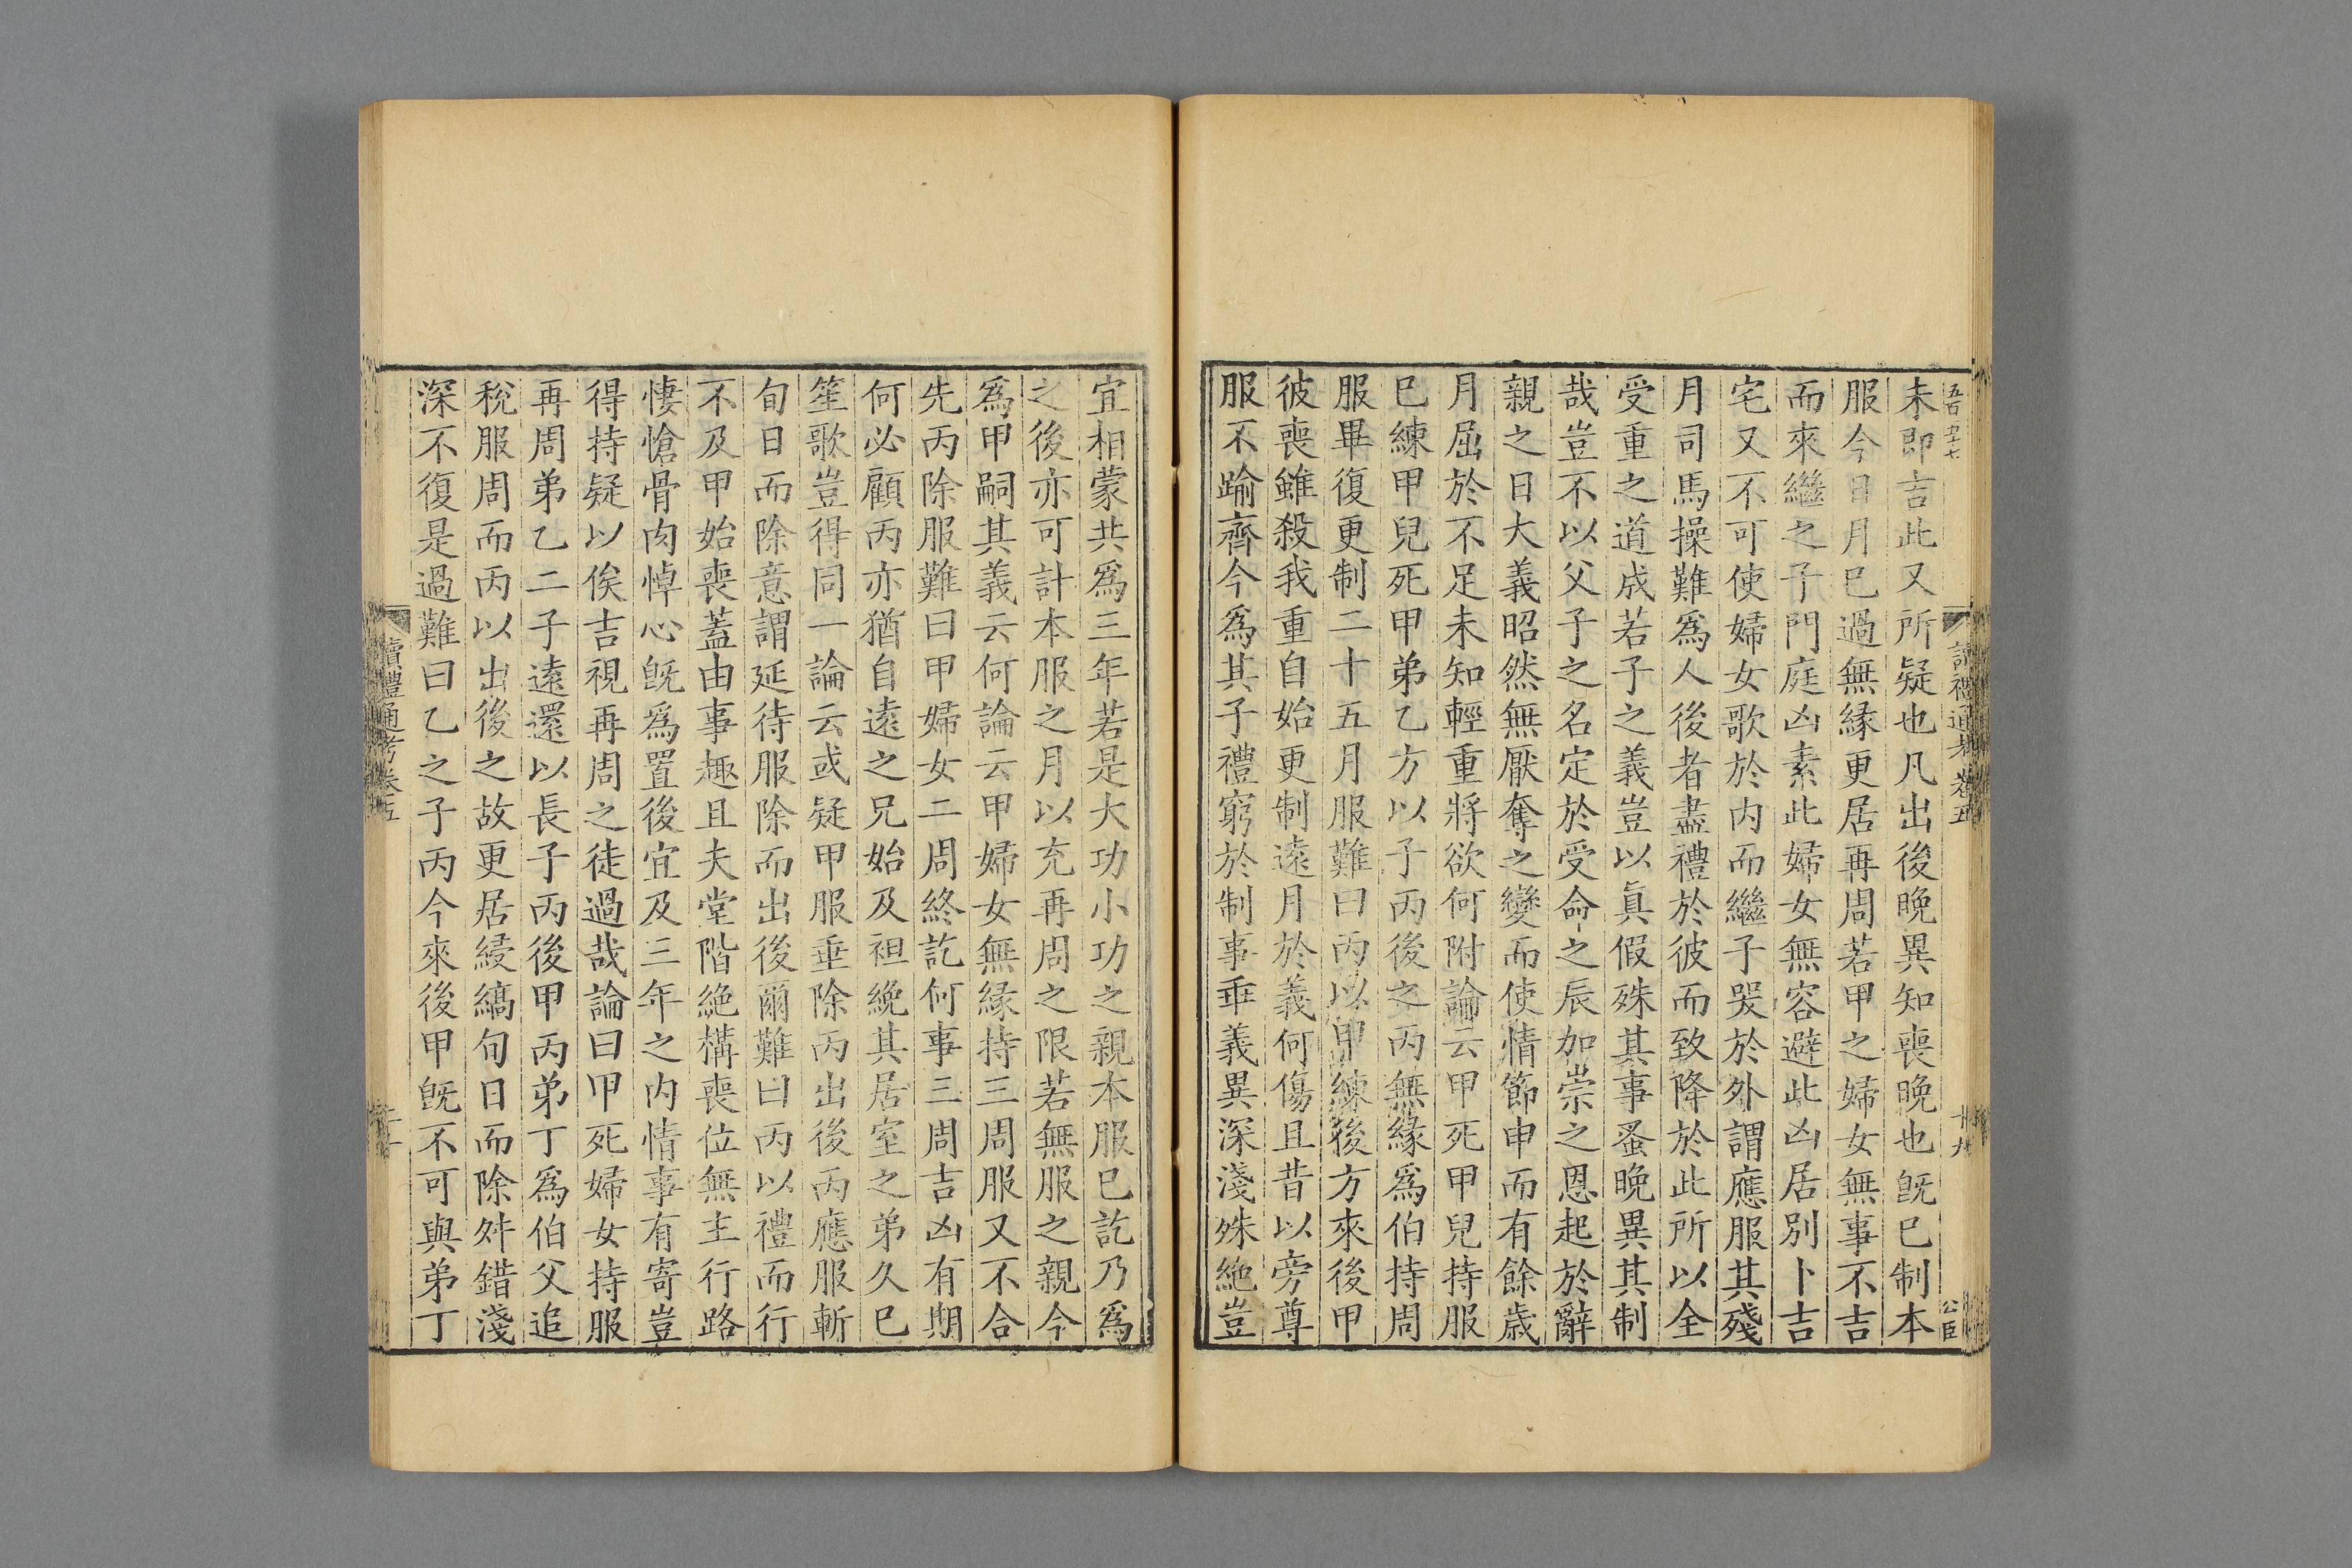 五百五十七
讀禮通考卷五
十九
公臣
未即吉此又所疑也凡出後晚異知喪晚也旣已制本
服今日月已過無緣更居再周若甲之婦女無事不吉
而來繼之子門庭凶素此婦女無容避此凶居別卜吉
宅又不可使婦女歌於內而繼子哭於外謂應服其殘
月司馬操難爲人後者盡禮於彼而致降於此所以全
受重之道成若子之義豈以眞假殊其事蚤晚異其制
哉豈不以父子之名定於受命之辰加崇之恩起於辭
親之日大義昭然無厭奪之變而使情節申而有餘歲
月屈於不足未知輕重將欲何附論云甲死甲兒持服
已練甲兒死甲弟乙方以子丙後之丙無緣爲伯持周
服畢復更制二十五月服難曰丙以甲練後方來後甲
彼喪雖殺我重自始更制遠月於義何傷且昔以旁尊
服不踰齊今爲其子禮窮於制事垂義異深淺殊絶豈
宜相蒙共爲三年若是大功小功之親本服已訖乃爲
之後亦可計本服之月以充再周之限若無服之親今
爲甲嗣其義云何論云甲婦女無緣持三周服又不合
先丙除服難曰甲婦女二周終訖何事三周吉凶有期
何必顧丙亦猶自遠之兄始及袒絻其居室之弟久已
笙歌豈得同一論云或疑甲服垂除丙出後丙應服斬
旬日而除意謂延待服除而出後爾難曰丙以禮而行
不及甲始喪蓋由事趣且夫堂階絶構喪位無主行路
悽愴骨肉悼心旣爲置後宜及三年之內情事有寄豈
得持疑以俟吉視再周之徒過哉論曰甲死婦女持服
再周弟乙二子遠還以長子丙後甲丙弟丁爲伯父追
稅服周而丙以出後之故更居縗縞旬日而除舛錯淺
深不復是過難曰乙之子丙今來後甲旣不可與弟丁
讀禮通考卷五
二十